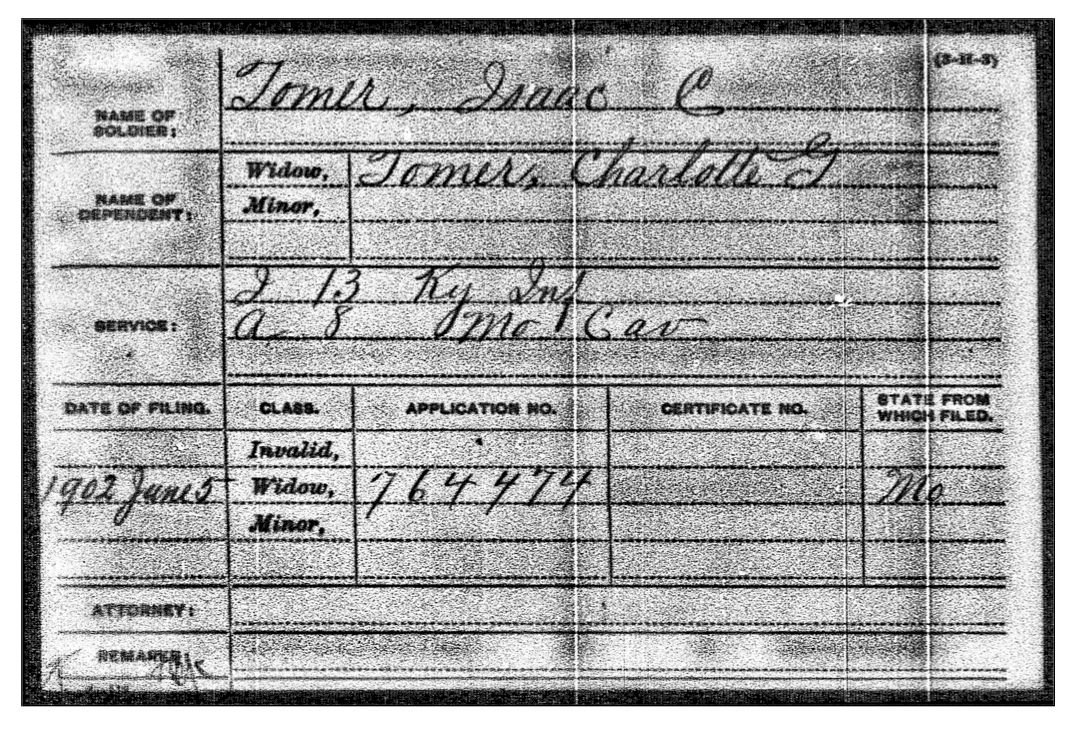 (3-11-3)
NAME OF SOLDIER: Tomer, Isaac C
NAME OF DEPENDENT: Widow, Tomer, Charlotte G
Minor,
SERVICE: I 13 Ky Inf
A 8 Mo Cav
DATE OF FILING. CLASS. APPLICATION NO. CERTIFICATE NO. STATE FROM WHICH FILED.
Invalid,
1902 June 5 Widow, 764474 Mo
Minor,
ATTORNEY:
REMARKS: